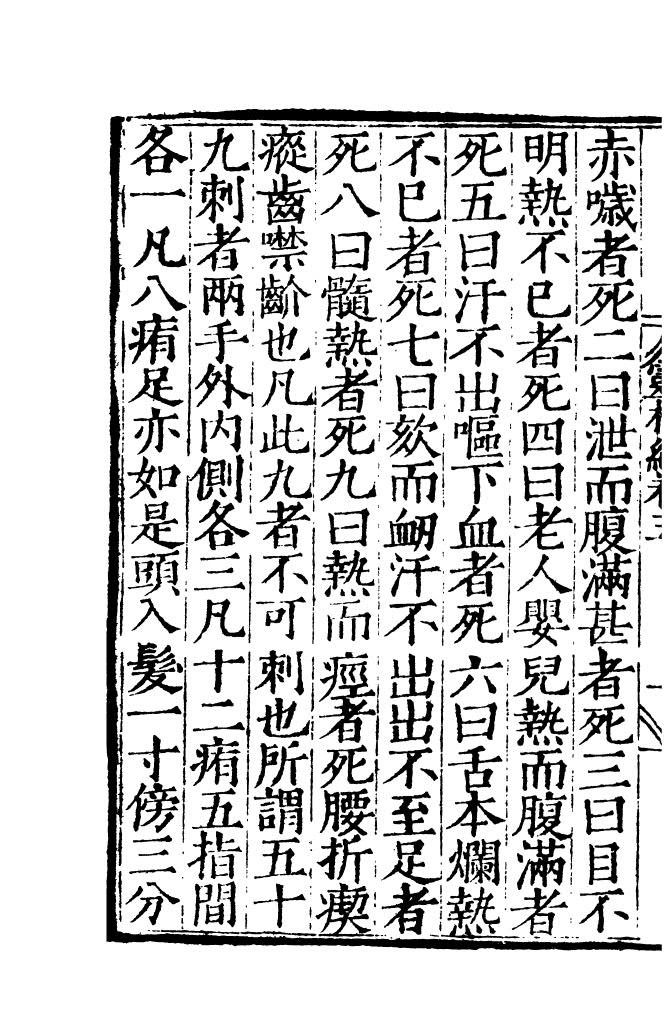 赤噦者死二曰泄而腹滿甚者死三曰目不
明熱不巳者死四曰老人嬰兒熱而腹滿者
死五曰汗不出嘔下血者死六曰舌本爛熱
不巳者死七曰欬而衄汗不出出不至足者
死八曰髓熱者死九曰熱而痙者死腰折瘈
瘲齒噤齘也凡此九者不可刺也所謂五十
九刺者兩手外内側各三凡十二痏五指間
各一凡八痏足亦如是頭入髮一寸傍三分